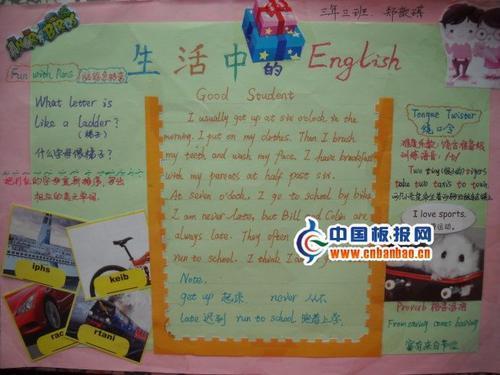 三年三班 郑歆琪
生活中的 English
Fun with Puns
What letter is
like a ladder?
(梯子)
什么字母像梯子?
相应的英文单词
iphs
keib
rac
rtani
Good Student
I usually get up at six o'clock in the
morning. I put on my clothes. Then I brush
my teeth and wash my face. I have breakfast
with my parents at half past six.
At seven o'clock, I go to school by bike.
I am never late, but Bill and Colin are
always late. They often
run to school. I think I am
Note:
get up 起床 never 从不
late 迟到 run to school 跑着上学
Tongue Twister
绕口令
训练语音: /t/
Two tiny tigers
take two taxis to town
I love sports.
运动。
中国板报网
www.cnbanbao.cn
Proverb 格言谚语
From saving comes having
富有来自节俭